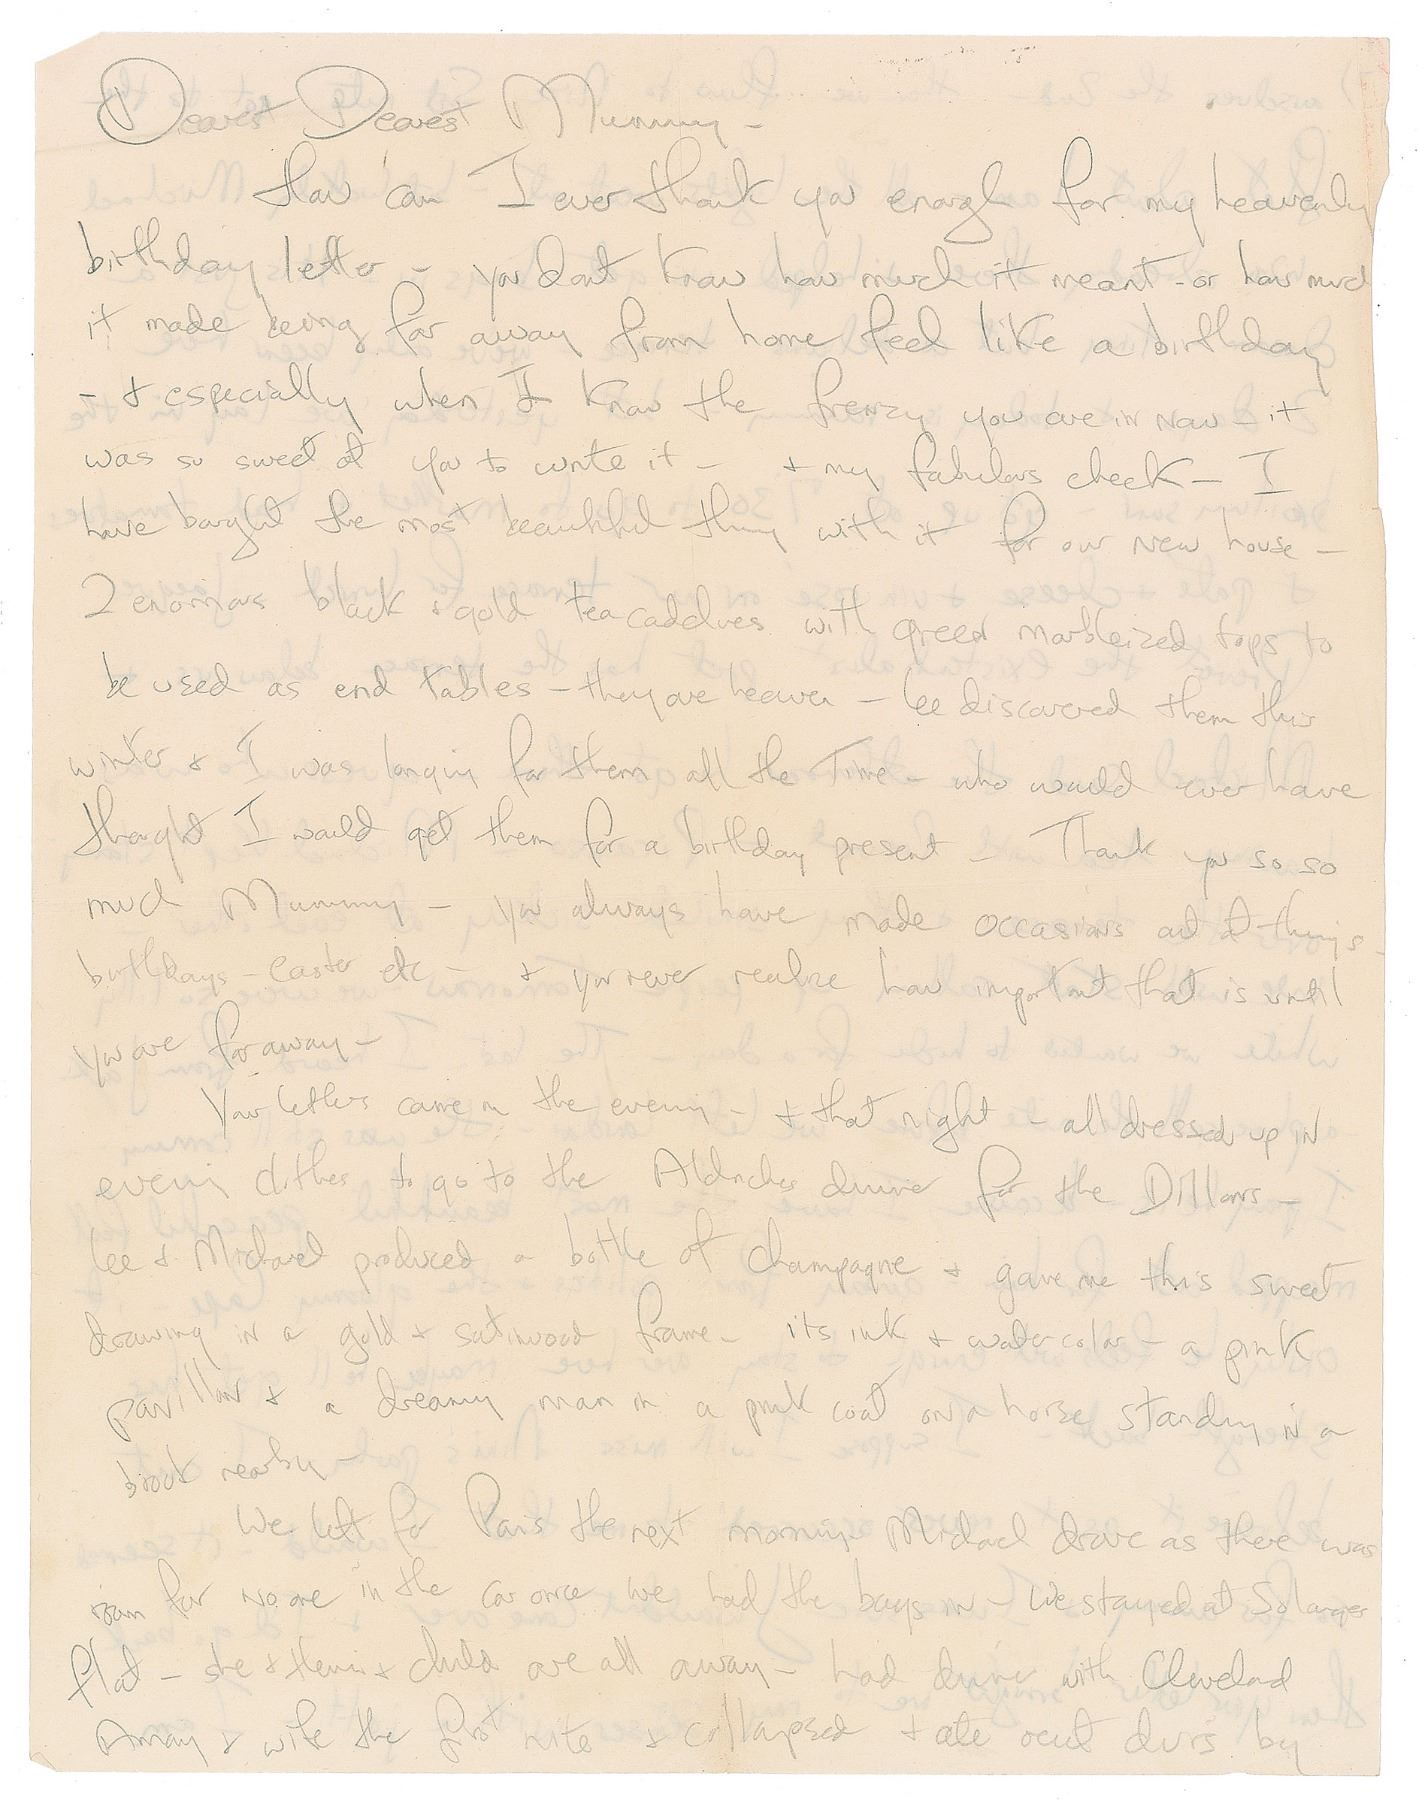 Dearest Dearest Mummy -
How can I ever thank you enough for my heavenly
birthday letter - you dont know how much it meant - or how much
it made being far away from home feel like a birthday
- & especially when I know the frenzy you are in now - it
was so sweet of you to write it - & my fabulous check - I
have bought the most beautiful thing with it for our new house -
2 enormous black & gold tea caddies with green marbleized tops to
be used as end tables - they are heaven - Lee discovered them this
winter & I was longing for them all the time - who would ever have
thought I would get them for a birthday present - Thank you so so
much Mummy - you always have made occasions out of things -
birthdays - easter etc - & you never realize how important that is until
you are far away -
Your letters came in the evening - & that night - all dressed up in
evening clothes to go to the Aldriches dinner for the Dillons -
Lee & Michael produced a bottle of champagne & gave me this sweet
drawing in a gold & satinwood frame - its ink & watercolor - a pink
pavillion & a dreamy man in a pink coat on a horse standing in a
brook nearby -
We left for Paris the next morning Michael drove as there was
room for no one in the car once we had the bags in - We stayed at Solanges
flat - she & & child are all away - had dinner with Cleveland
Amory & wife the first nite & collapsed & ate oeuf durs by